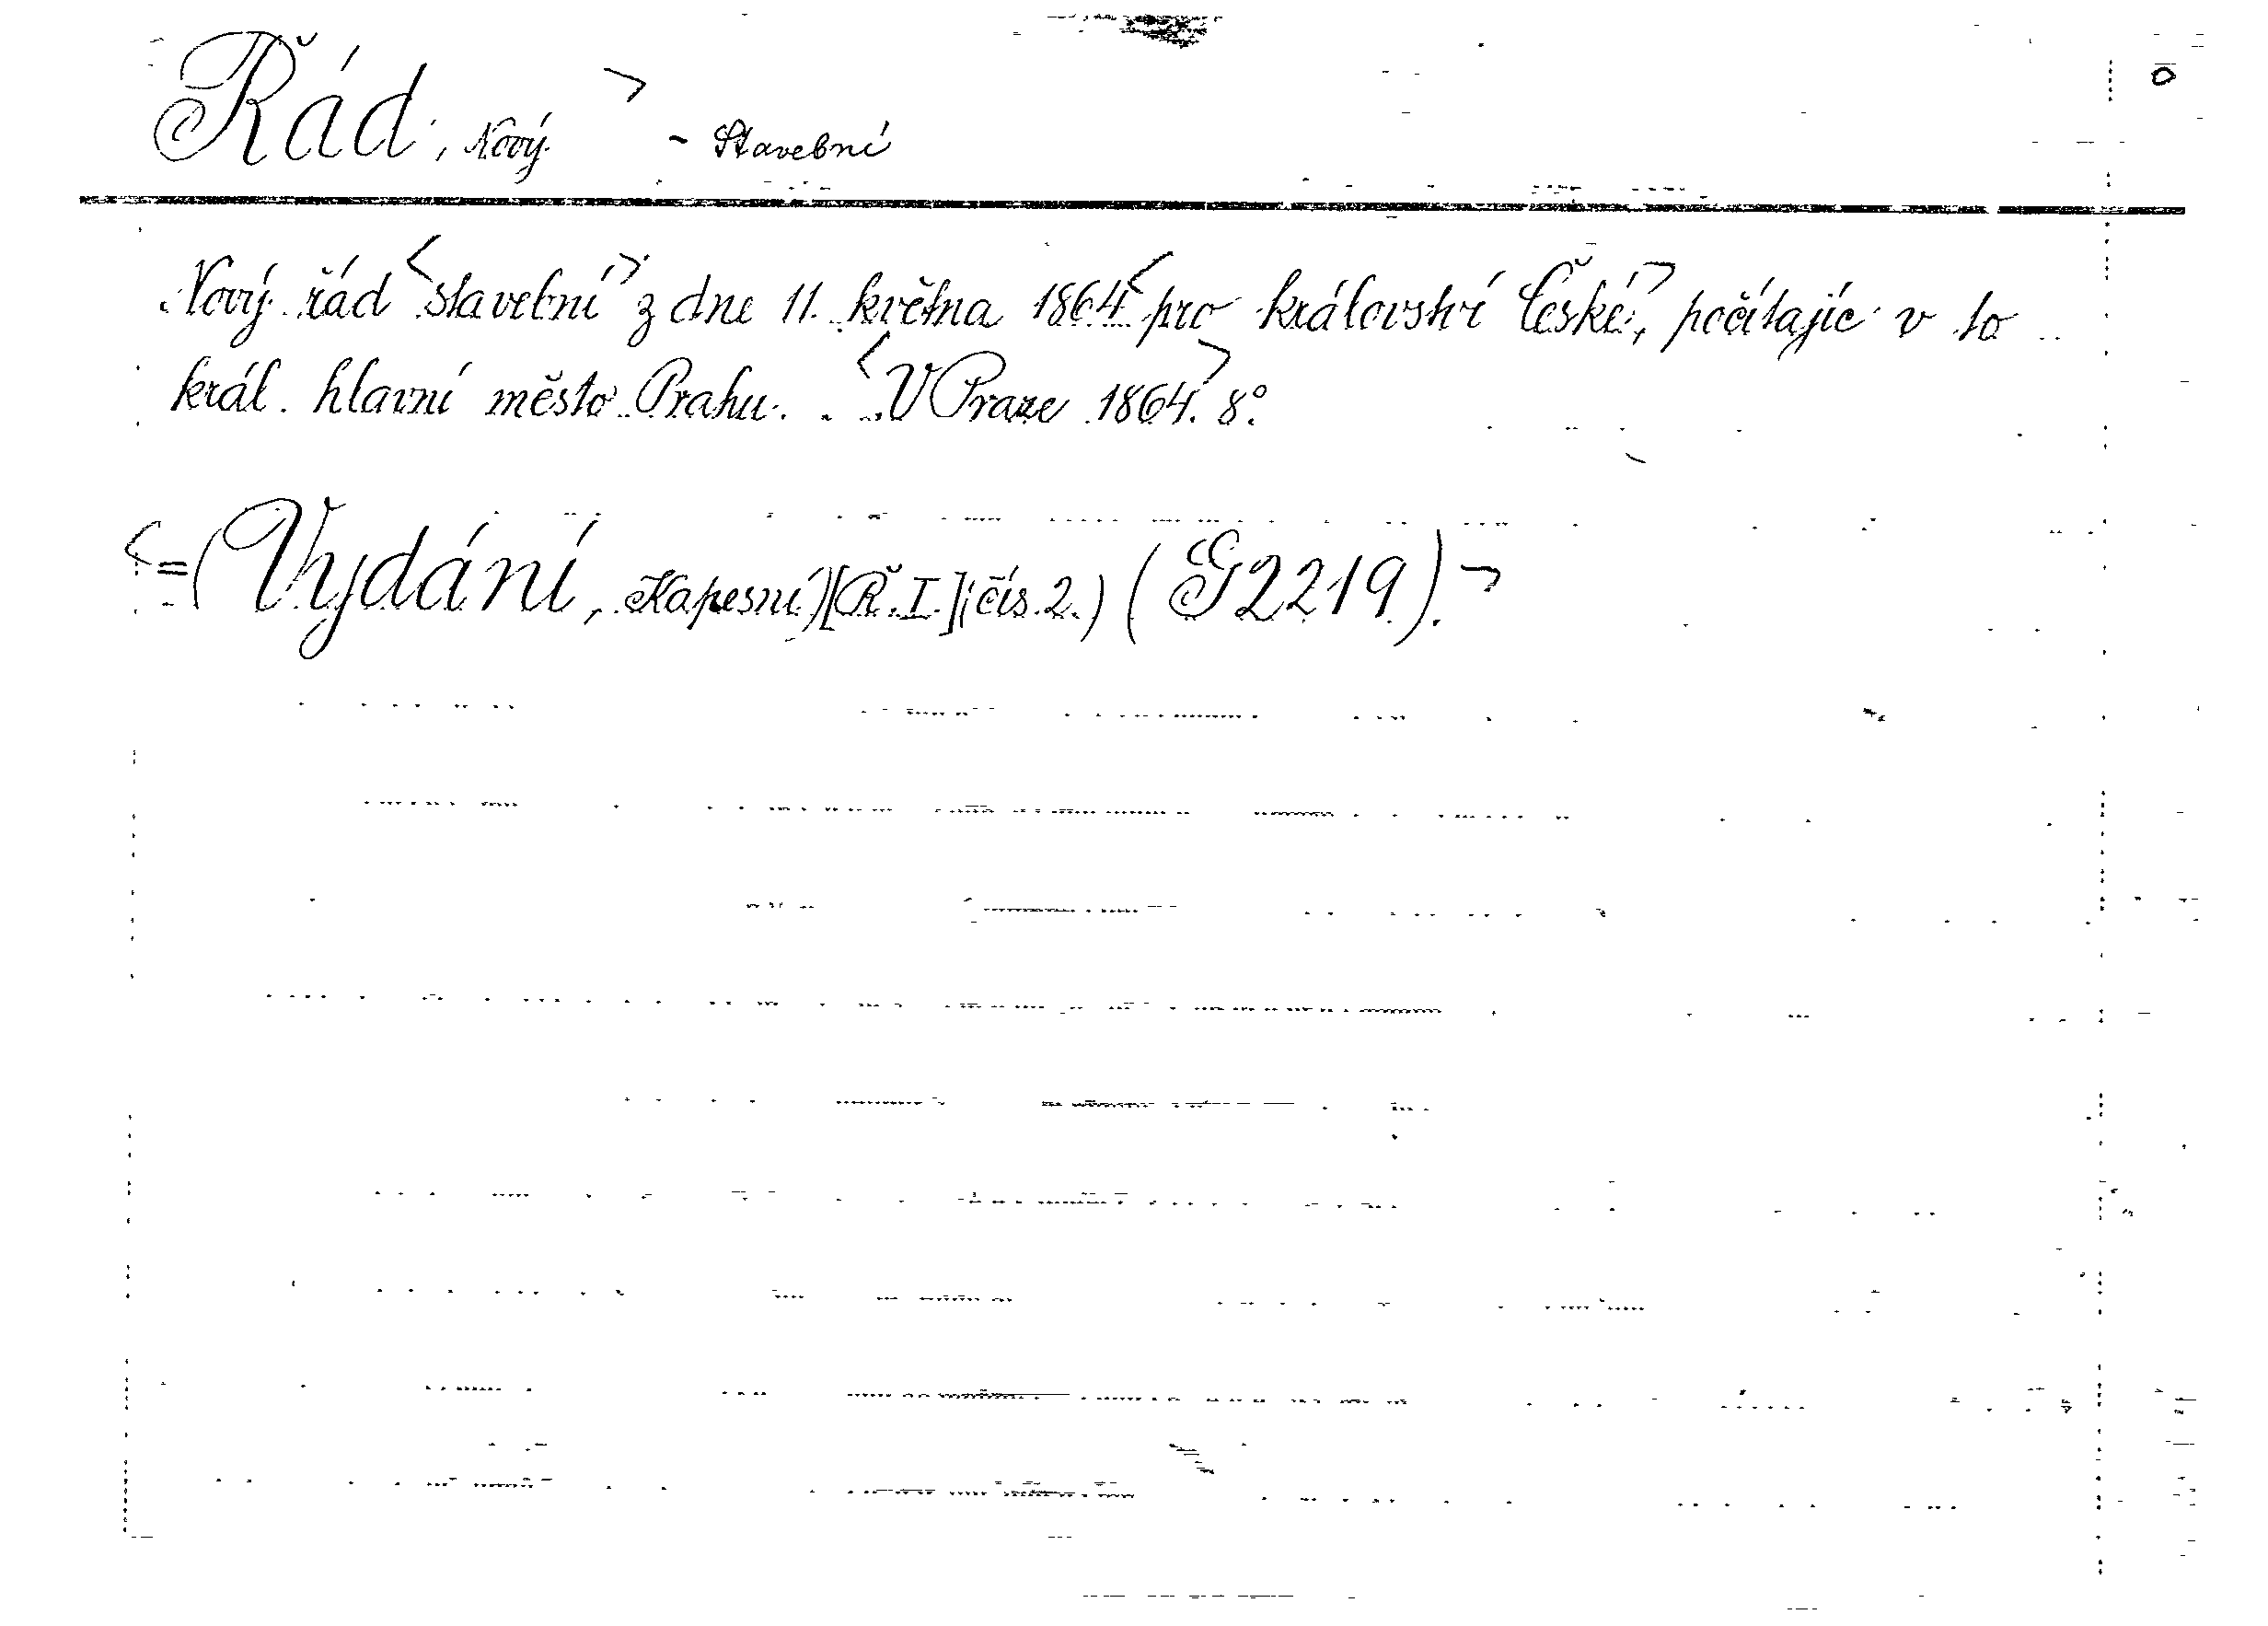 Řád, Nový ~ Stavební
Nový řád <stavební> z dne 11. května 1864 <pro království České>, počítajíc v to
král. hlavní město Prahu. . <V Praze 1864.> 8°.
<=(Vydání, Kapesní)[Ř.I.](čís.2.) (G2219).>